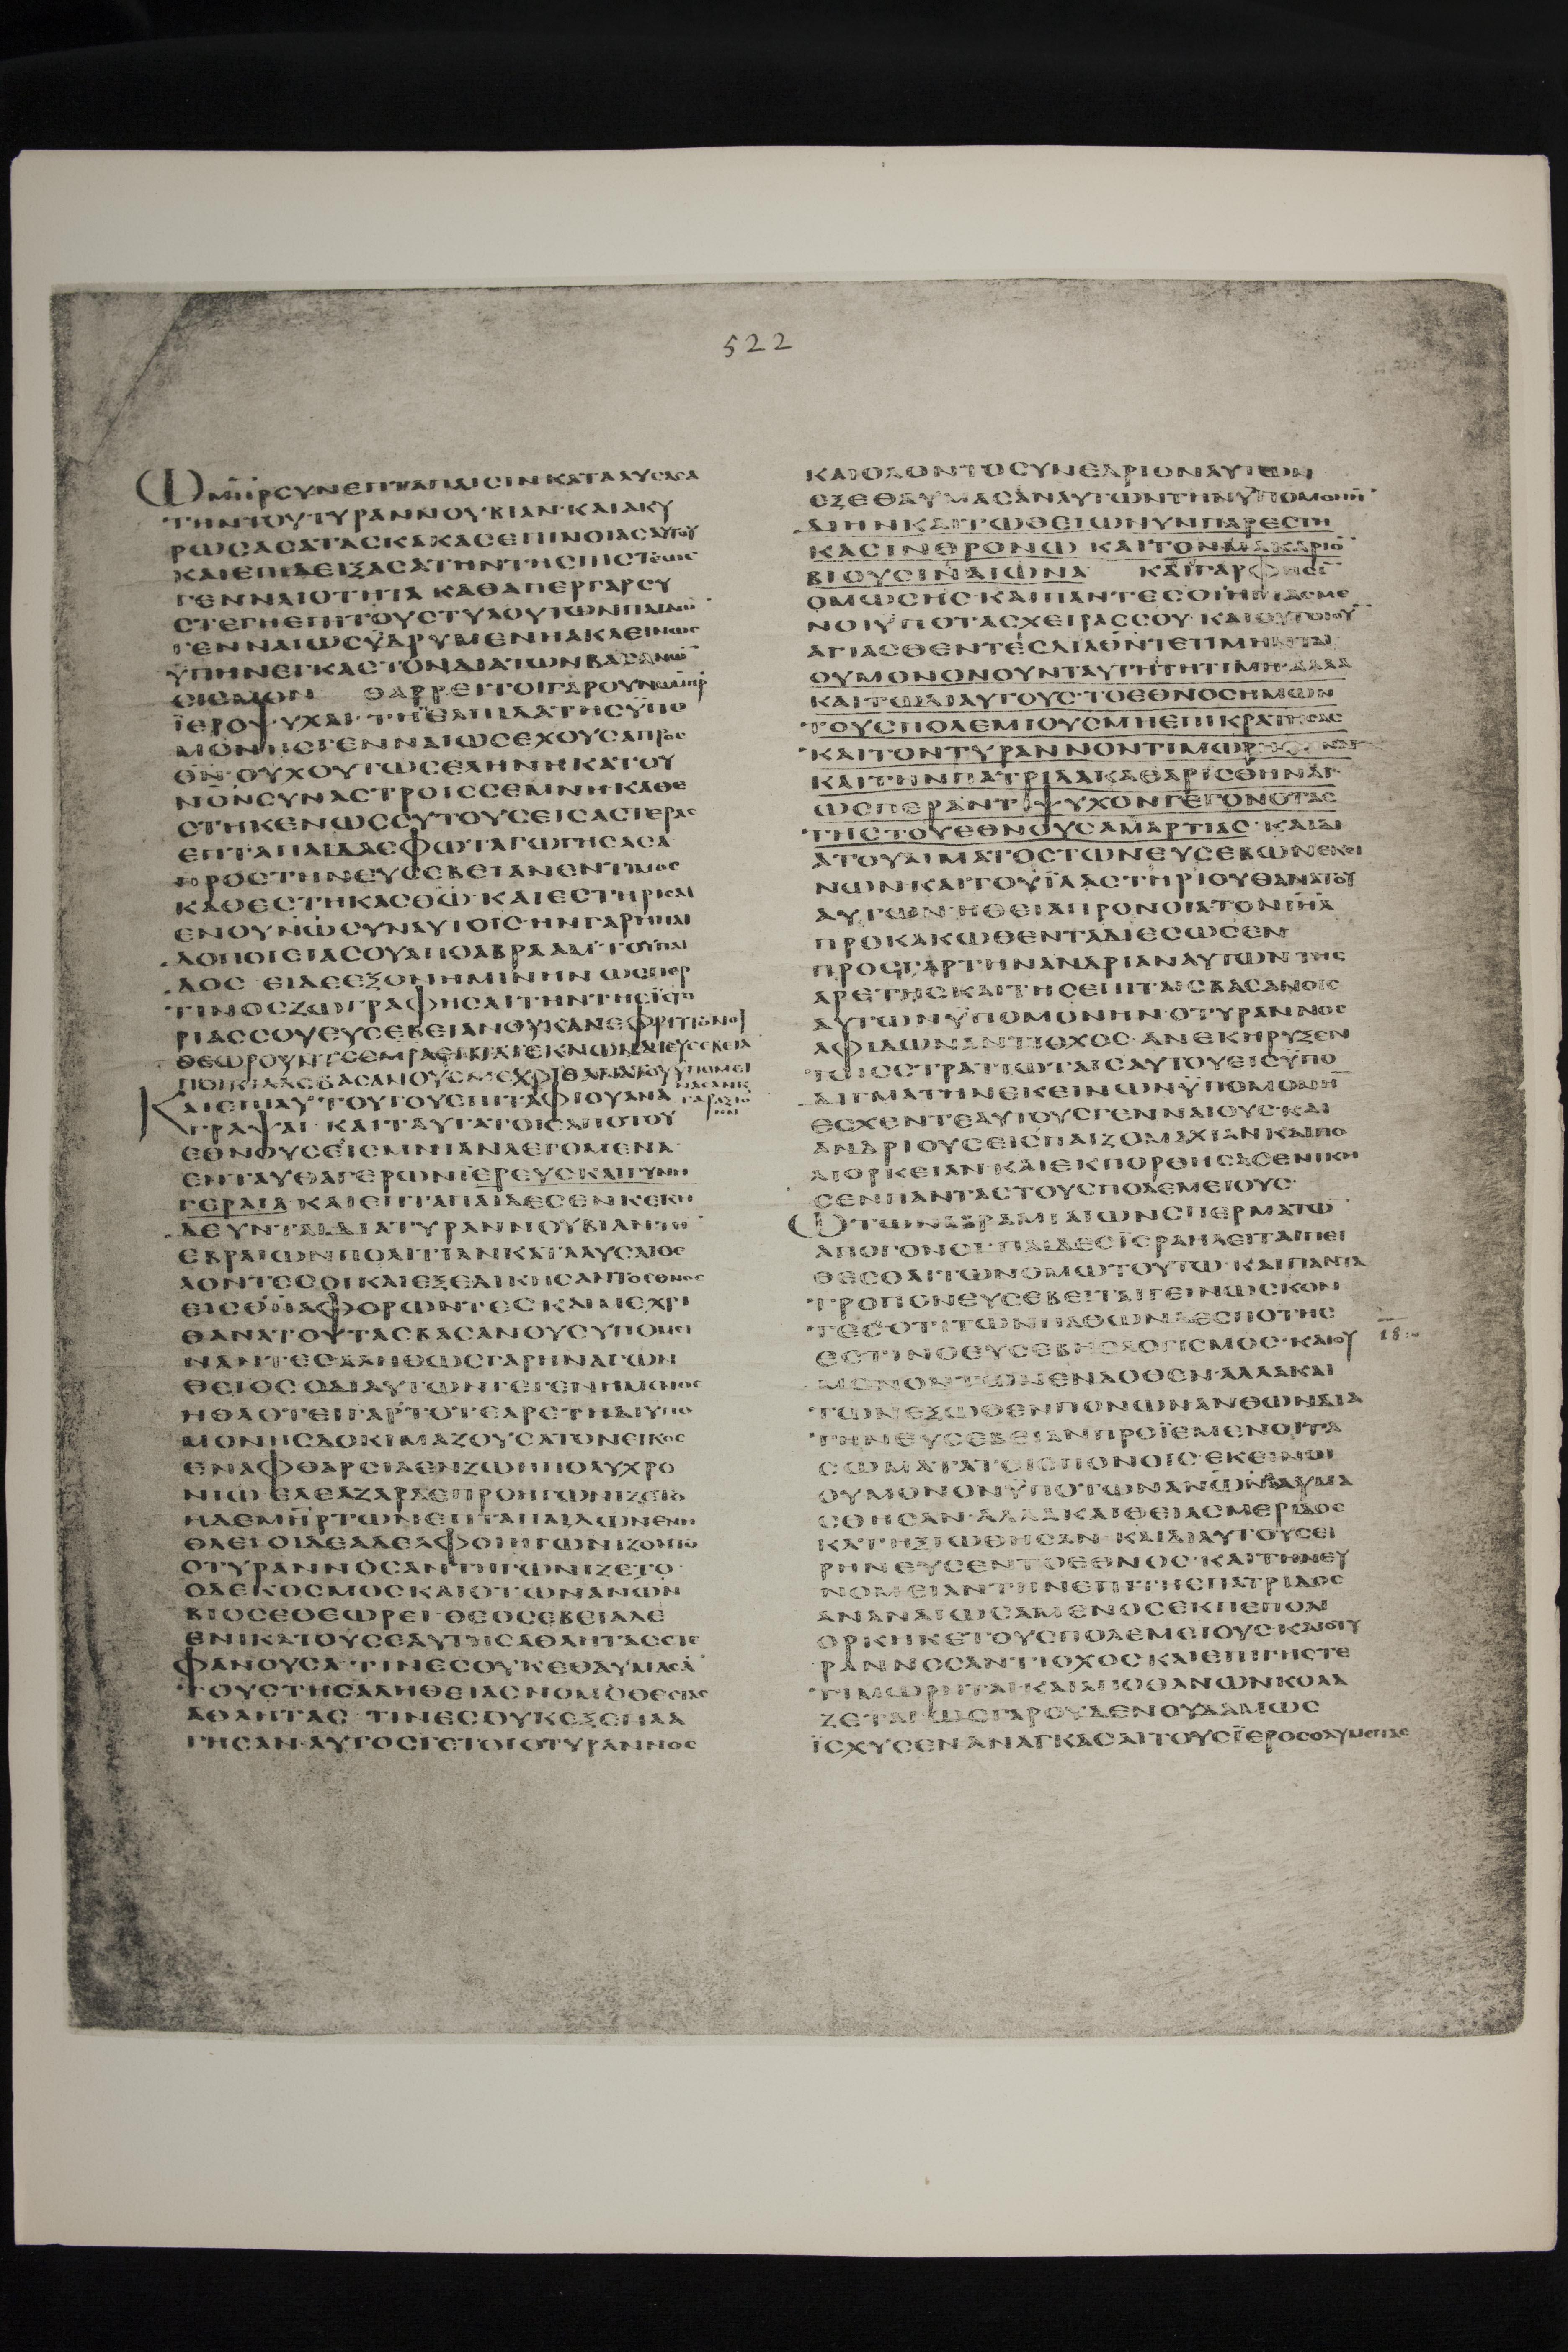 522
ΩΜΗΡϹΥΝΕΠΤΑΠΑΙϹΙΝΚΑΤΑΛΥϹΑϹΑ
ΤΗΝΤΟΥΤΥΡΑΝΝΟΥΒΙΑΝ·ΚΑΙΑΚΥ
ΡΩϹΑϹΑΤΑϹΚΑΚΑϹΕΠΙΝΟΙΑϹΑΥΤΟΥ
ΚΑΙΕΠΙΔΕΙΞΑϹΑΤΗΝΤΗϹΠΙϹΤΕΩϹ
ΓΕΝΝΑΙΟΤΗΤΑ ΚΑΘΑΠΕΡΓΑΡϹΥ
ϹΤΕΓΗΕΠΙΤΟΥϹΤΥΛΟΥϹΤΩΝΠΑΙΔΩ̄
ΓΕΝΝΑΙΩϹΪ̈ΔΡΥΜΕΝΗΑΚΛΕΙΝΩϹ
ΫΠΗΝΕΓΚΑϹΤΟΝΔΙΑΤΩΝΒΑϹΑΝΩ̄
ϹΙϹΜΟΝ ΘΑΡΡΕΙΤΟΙΓΑΡΟΥΝΩΜΗΡ
ΪΕΡΟΨΥΧΑΙ·ΤΗΝΕΛΠΙΔΑΤΗϹΫΠΟ
ΜΟΝΗϹΓΕΝΝΑΙΩϹΕΧΟΥϹΑΠΡΟϹ
Θ̅Ν̅·ΟΥΧΟΥΤΩϹΕΛΗΝΗΚΑΤΟΥ
ΝΟΝϹΥΝΑϹΤΡΟΙϹϹΕΜΝΗΚΑΘΕ
ϹΤΗΚΕΝΩϹϹΥΤΟΥϹΕΙϹΑϹΤΕΡΑϹ
ΕΠΤΑΠΑΙΔΑϹΦΩΤΑΓΩΓΗϹΑϹΑ
ΠΡΟϹΤΗΝΕΥϹΕΒΕΙΑΝΕΝΤΙΜΟϹ
ΚΑΘΕϹΤΗΚΑϹΘ̅Ω̅·ΚΑΙΕϹΤΗΡΙϹΑΙ
ΕΝΟΥΝΩ̅ϹΥΝΑΥΤΟΙϹ·ΗΝΓΑΡΗΠΑΙ
ΔΟΠΟΙΕΙΑϹΟΥΑΠΟΑΒΡΑΑΜ·ΤΟΥΠΑΙ
ΔΟϹ ΕΙΔΕΕΞΟΝΗΜΙΝΗΝ ΩϹΠΕΡ
ΤΙΝΟϹΖΩΓΡΑΦΗϹΑΙΤΗΝΤΗϹΪϹΤΟ
ΡΙΑϹϹΟΥΕΥϹΕΒΕΙΑΝΟΥΚΑΝΕΦΡΙΤΤΟΝΟΙ
ΘΕΩΡΟΥΝΤΕϹΜΡΑΕΠΤΑΤΕΚΝΩΝΔΙΕΥϹΕΒΕΙΑ
ΠΟΙΚΙΛΑϹΒΑϹΑΝΟΥϹΜΕΧΡΙΘΑΝΑΤΟΥΫΠΟΜΕΙ
ΝΑϹΑΝΚ
ΚΑΙΕΠΑΥΤΟΥΤΟΥΕΠΙΤΑΦΙΟΥΑΝΑ
ΓΑΡΑΞΙΟ
ΗΝ
ΓΡΑΨΑΙ ΚΑΙΤΑΥΤΑΤΟΙϹΑΠΟΤΟΥ
ΕΘΝΟΥϹΕΙϹΜΝΙΑΝΛΕΓΟΜΕΝΑ
ΕΝΤΑΥΘΑΓΕΡΩΝΪΕΡΕΥϹΚΑΙΓΥΝΗ
ΓΕΡΑΙΑ·ΚΑΙΕΠΤΑΠΑΙΔΕϹΕΝΚΕΚΗ
ΔΕΥΝΤΑΙΔΙΑΤΥΡΑΝΝΟΥΒΙΑΝΤΗ̄
ΕΒΡΑΙΩΝΠΟΛΙΤΙΑΝΚΑΤΑΛΥϹΑΙΘΕ
ΛΟΝΤΟϹΟΙΚΑΙΕΞΕΔΙΚΗϹΑΝΤΟΕΘΝΟϹ
ΕΙϹΘ̅Ν̅ΑΦΟΡΩΝΤΕϹ ΚΑΙΜΕΧΡΙ
ΘΑΝΑΤΟΥΤΑϹΒΑϹΑΝΟΥϹΥΠΟΜΕΙ
ΝΑΝΤΕϹ·ΑΛΗΘΩϹΓΑΡΗΝΑΓΩΝ
ΘΕΙΟϹΟΔΙΑΥΤΩΝΓΕΓΕΝΗΜΕΝΟϹ
ΗΘΛΟΤΕΙΓΑΡΤΟΤΕΑΡΕΤΗΔΙΥΠΟ
ΜΟΝΗϹΔΟΚΙΜΑΖΟΥϹΑΤΟΝΕΙΚΟϹ
ΕΝΑΦΘΑΡϹΙΑΕΝΖΩΗΠΟΛΥΧΡΟ
ΝΙΩ ΕΛΕΑΖΑΡΔΕΠΡΟΗΓΩΝΙΖΕΤΟ
ΗΔΕΜΗΡΤΩΝΕΠΤΑΠΑΙΔΩΝΕΝΗ
ΘΛΕΙΟΙΔΕΑΔΕΛΦΟΙΗΓΩΝΙΖΟΝΤΟ
ΟΤΥΡΑΝΝΟϹΑΝΤΗΓΩΝΙΖΕΤΟ·
ΟΔΕΚΟϹΜΟϹΚΑΙΟΤΩΝΑΝΩΝ
ΒΙΟϹΕΘΕΩΡΕΙ·ΘΕΟϹΕΒΕΙΑΔΕ
ΕΝΙΚΑΤΟΥϹΕΑΥΤΗϹΑΘΛΗΤΑϹϹΤΕ
ΦΑΝΟΥϹΑ·ΤΙΝΕϹΟΥΚΕΘΑΥΜΑϹᾹ
ΤΟΥϹΤΗϹΑΛΗΘΕΙΑϹΝΟΜΟΘΕϹΙΑϹ
ΑΘΛΗΤΑϹ ΤΙΝΕϹΟΥΚΕΞΕΠΛΑ
ΓΗϹΑΝ·ΑΥΤΟϹΓΕΤΟΙΟΤΥΡΑΝΝΟϹ
ΚΑΙΟΛΟΝΤΟϹΥΝΕΔΡΙΟΝΑΥΤΩΝ
ΕΞΕΘΑΥΜΑϹΑΝΑΥΤΩΝΤΗΝΫΠΟΜΟΝΗ̄
ΔΙΗΝΚΑΙΤΩΘΕΙΩΝΥΝΠΑΡΕϹΤΗ
ΚΑϹΙΝΘΡΟΝΩ ΚΑΙΤΟΝΜΑΚΑΡΙΟ̄
ΒΙΟΥϹΙΝΑΙΩΝΑ ΚΑΙΓΑΡΦΗϹΙ
ΟΜΩϹΗϹ·ΚΑΙΠΑΝΤΕϹΟΙΗΓΙΑϹΜΕ
ΝΟΙΫΠΟΤΑϹΧΕΙΡΑϹϹΟΥ·ΚΑΙΟΥΤΟΙΟΥ
ΑΓΙΑϹΘΕΝΤΕϹΔΙΑΘ̅Ν̅ΤΕΤΙΜΗΝΤΑΙ
ΟΥΜΟΝΟΝΟΥΝΤΑΥΤΗΤΗΤΙΜΗ·ΑΛΛΑ
ΚΑΙΤΩΔΙΑΥΤΟΥϹ·ΤΟΕΘΝΟϹΗΜΩΝ
ΤΟΥϹΠΟΛΕΜΙΟΥϹΜΗΕΠΙΚΡΑΤΗϹΑΙ
ΚΑΙΤΟΝΤΥΡΑΝΝΟΝΤΙΜΩΡΗΘΗΝΑΙ
ΚΑΙΤΗΝΠΑΤΡΙΔΑΚΑΘΑΡΙϹΘΗΝΑΙ
ΩϹΠΕΡΑΝΤΙΨΥΧΟΝΓΕΓΟΝΟΤΑϹ
ΤΗϹΤΟΥΕΘΝΟΥϹΑΜΑΡΤΙΑϹ·ΚΑΙΔΙ
ΑΤΟΥΑΙΜΑΤΟϹΤΩΝΕΥϹΕΒΩΝΕΚΕΙ
ΝΩΝ·ΚΑΙΤΟΥΪΛΑϹΤΗΡΙΟΥΘΑΝΑΤΟΥ
ΑΥΤΩΝ·ΗΘΕΙΑΠΡΟΝΟΙΑΤΟΝΙΗΛ
ΠΡΟΚΑΚΩΘΕΝΤΑΔΙΕϹΩϹΕΝ
ΠΡΟϹΓΑΡΤΗΝΑΝΔΡΙΑΝΑΥΤΩΝΤΗϹ
ΑΡΕΤΗϹΚΑΙΤΗϹΕΠΙΤΑΙϹΒΑϹΑΝΟΙϹ
ΑΥΤΩΝΫΠΟΜΟΝΗΝ·ΟΤΥΡΑΝΝΟϹ
ΑΦΙΔΩΝΑΝΤΙΟΧΟϹ·ΑΝΕΚΗΡΥΞΕΝ
ΤΟΙϹϹΤΡΑΤΙΩΤΑΙϹΑΥΤΟΥΕΙϹΫΠΟ
ΔΙΓΜΑΤΗΝΕΚΕΙΝΩΝΫΠΟΜΟΝΗ̄
ΕϹΧΕΝΤΕΑΥΤΟΥϹΓΕΝΝΑΙΟΥϹ·ΚΑΙ
ΑΝΔΡΙΟΥϹΕΙϹΠΑΙΖΟΜΑΧΙΑΝΚΑΙΠΟ
ΛΙΟΡΚΕΙΑΝ·ΚΑΙΕΚΠΟΡΘΗϹΑϹΕΝΙΚΗ
ϹΕΝΠΑΝΤΑϹΤΟΥϹΠΟΛΕΜΕΙΟΥϹ·
ΩΤΩΝΑΒΡΑΜΙΑΙΩΝϹΠΕΡΜΑΤΩ̄
ΑΠΟΓΟΝΟΙ·ΠΑΙΔΕϹΪϹΡΑΗΛΕΙΤΑΙΠΕΙ
ΘΕϹΘΑΙΤΩΝΟΜΩΤΟΥΤΩ·ΚΑΙΠΑΝΤΑ
ΤΡΟΠΟΝΕΥϹΕΒΕΙΤΑΙΓΕΙΝΩϹΚΟΝ
ΤΕϹΟΤΙΤΩΝΠΑΘΩΝΔΕϹΠΟΤΗϹ
ΕϹΤΙΝΟΕΥϹΕΒΗϹΛΟΓΙϹΜΟϹ·ΚΑΙΟΥ
18
ΜΟΝΟΝΤΩΝΕΝΔΟΘΕΝ·ΑΛΛΑΚΑΙ
ΤΩΝΕΞΩΘΕΝΠΟΝΩΝΑΝΘΩΝΔΙΑ
ΤΗΝΕΥϹΕΒΕΙΑΝΠΡΟΪΕΜΕΝΟΙΤΑ
ϹΩΜΑΤΑΤΟΙϹΠΟΝΟΙϹ·ΕΚΕΙΝΟΙ
ΟΥΜΟΝΟΝΫΠΟΤΩΝΑΝΩΝΕΘΑΥΜΑ
ϹΘΗϹΑΝ·ΑΛΛΑΚΑΙΘΕΙΑϹΜΕΡΙΔΟϹ
ΚΑΤΗΞΙΩΘΗϹΑΝ·ΚΑΙΔΙΑΥΤΟΥϹΕΙ
ΡΗΝΕΥϹΕΝΤΟΕΘΝΟϹ·ΚΑΙΤΗΝΕΥ
ΝΟΜΕΙΑΝΤΗΝΕΠΙΤΗϹΠΑΤΡΙΔΟϹ
ΑΝΑΝΑΙΩϹΑΜΕΝΟϹΕΚΠΕΠΟΛΙ
ΟΡΚΗΚΕΤΟΥϹΠΟΛΕΜΕΙΟΥϹ·ΚΑΙΟΤΥ
ΡΑΝΝΟϹΑΝΤΙΟΧΟϹΚΑΙΕΠΙΓΗϹΤΕ
ΤΙΜΩΡΗΤΑΙ·ΚΑΙΑΠΟΘΑΝΩΝΚΟΛΑ
ΖΕΤΑΙ·ΩϹΓΑΡΟΥΔΕΝΟΥΔΑΜΩϹ
ΪϹΧΥϹΕΝΑΝΑΓΚΑϹΑΙΤΟΥϹΪΕΡΟϹΟΛΥΜΕΙΤΑϹ